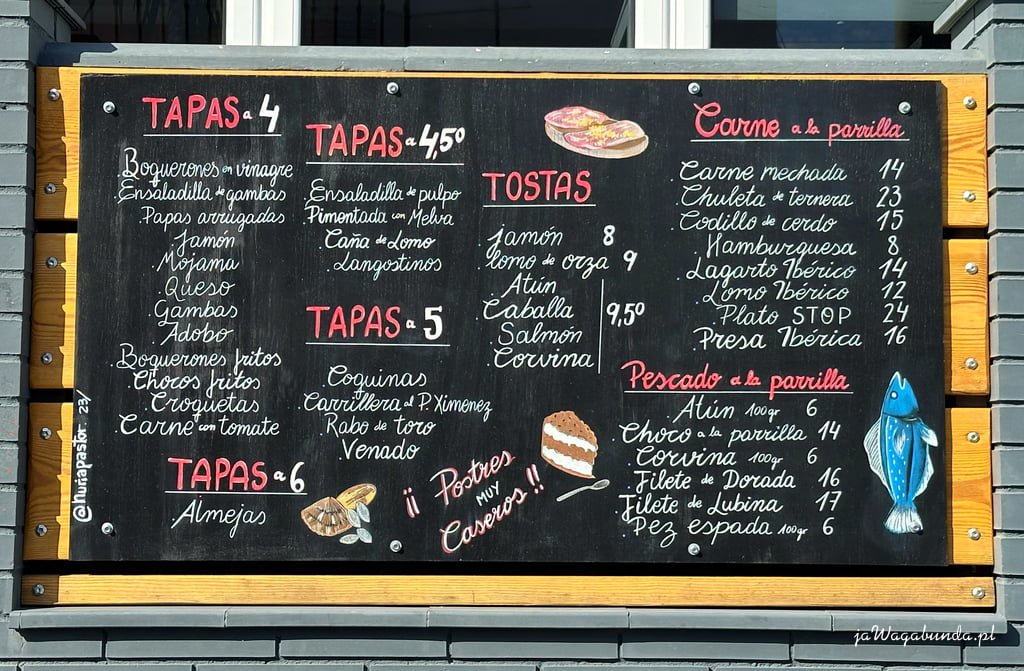 TAPAS a 4
Boquerones en vinagre
Ensaladilla de gambas
Papas arrugadas
Jamón
Mojama
Queso
Gambas
Adobo
Boquerones fritos
Chocos fritos
Croquetas
Carne con tomate
TAPAS a 6
Almejas
@huriapastor. 23/
TAPAS a 4,50
Ensaladilla de pulpo
Pimentada con Melva
Caña de Lomo
Langostinos
TAPAS a 5
Coquinas
Carrillera al P. Ximenez
Rabo de toro
Venado
¡¡ Postres
MUY
Caseros !!
TOSTAS
Jamón 8
lomo de orza 9
Atún
Caballa 9,50
Salmón
Corvina
Carne a la parrilla
Carne mechada 14
Chuleta de ternera 23
Codillo de cerdo 15
Hamburguesa 8
Lagarto Ibérico 14
Lomo Ibérico 12
Plato STOP 24
Presa Ibérica 16
Pescado a la parrilla
Atún 100gr 6
Choco a la parrilla 14
Corvina 100gr 6
Filete de Dorada 16
Filete de Lubina 17
Pez espada 100gr 6
jaWagabunda.pl